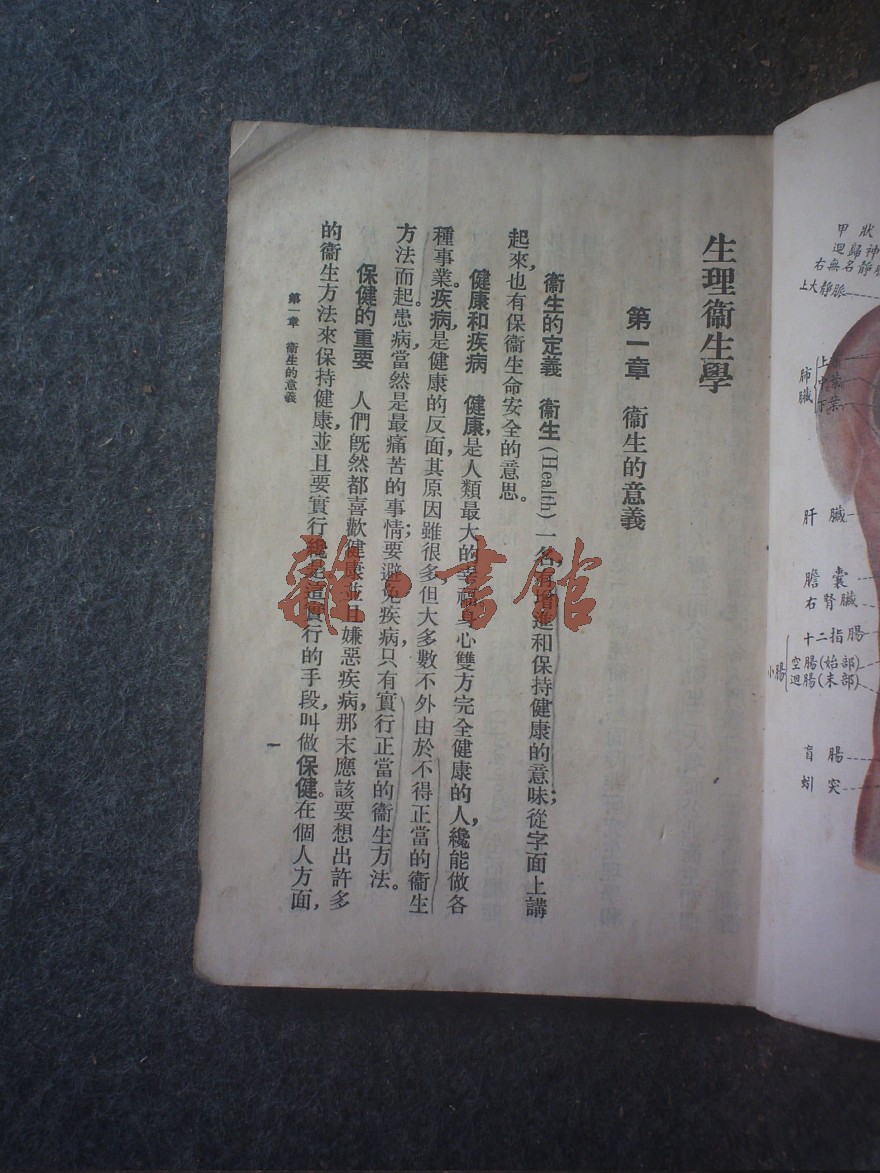 生理衞生學
第一章　衞生的意義
衞生的定義　衞生(Health)一名有增進和保持健康的意味；從字面上講
起來，也有保衞生命安全的意思。
健康和疾病　健康，是人類最大的幸福，身心雙方完全健康的人，纔能做各
種事業。疾病，是健康的反面，其原因雖很多，但大多數不外由於不得正當的衞生
方法而起。患病，當然是最痛苦的事情；要避免疾病，只有實行正當的衞生方法。
保健的重要　人們旣然都喜歡健康，並且嫌惡疾病，那末應該要想出許多
的衞生方法來保持健康，並且要實行纔是；這實行的手段，叫做保健。在個人方面，
第一章　衞生的意義
一
雜·書館
甲狀
迴歸神
右無名靜
上大靜脈
肺臟
上葉
中葉
下葉
肝臟
膽囊
右腎臟
十二指腸
小腸
空腸(始部)
迴腸(末部)
盲腸
蚓突